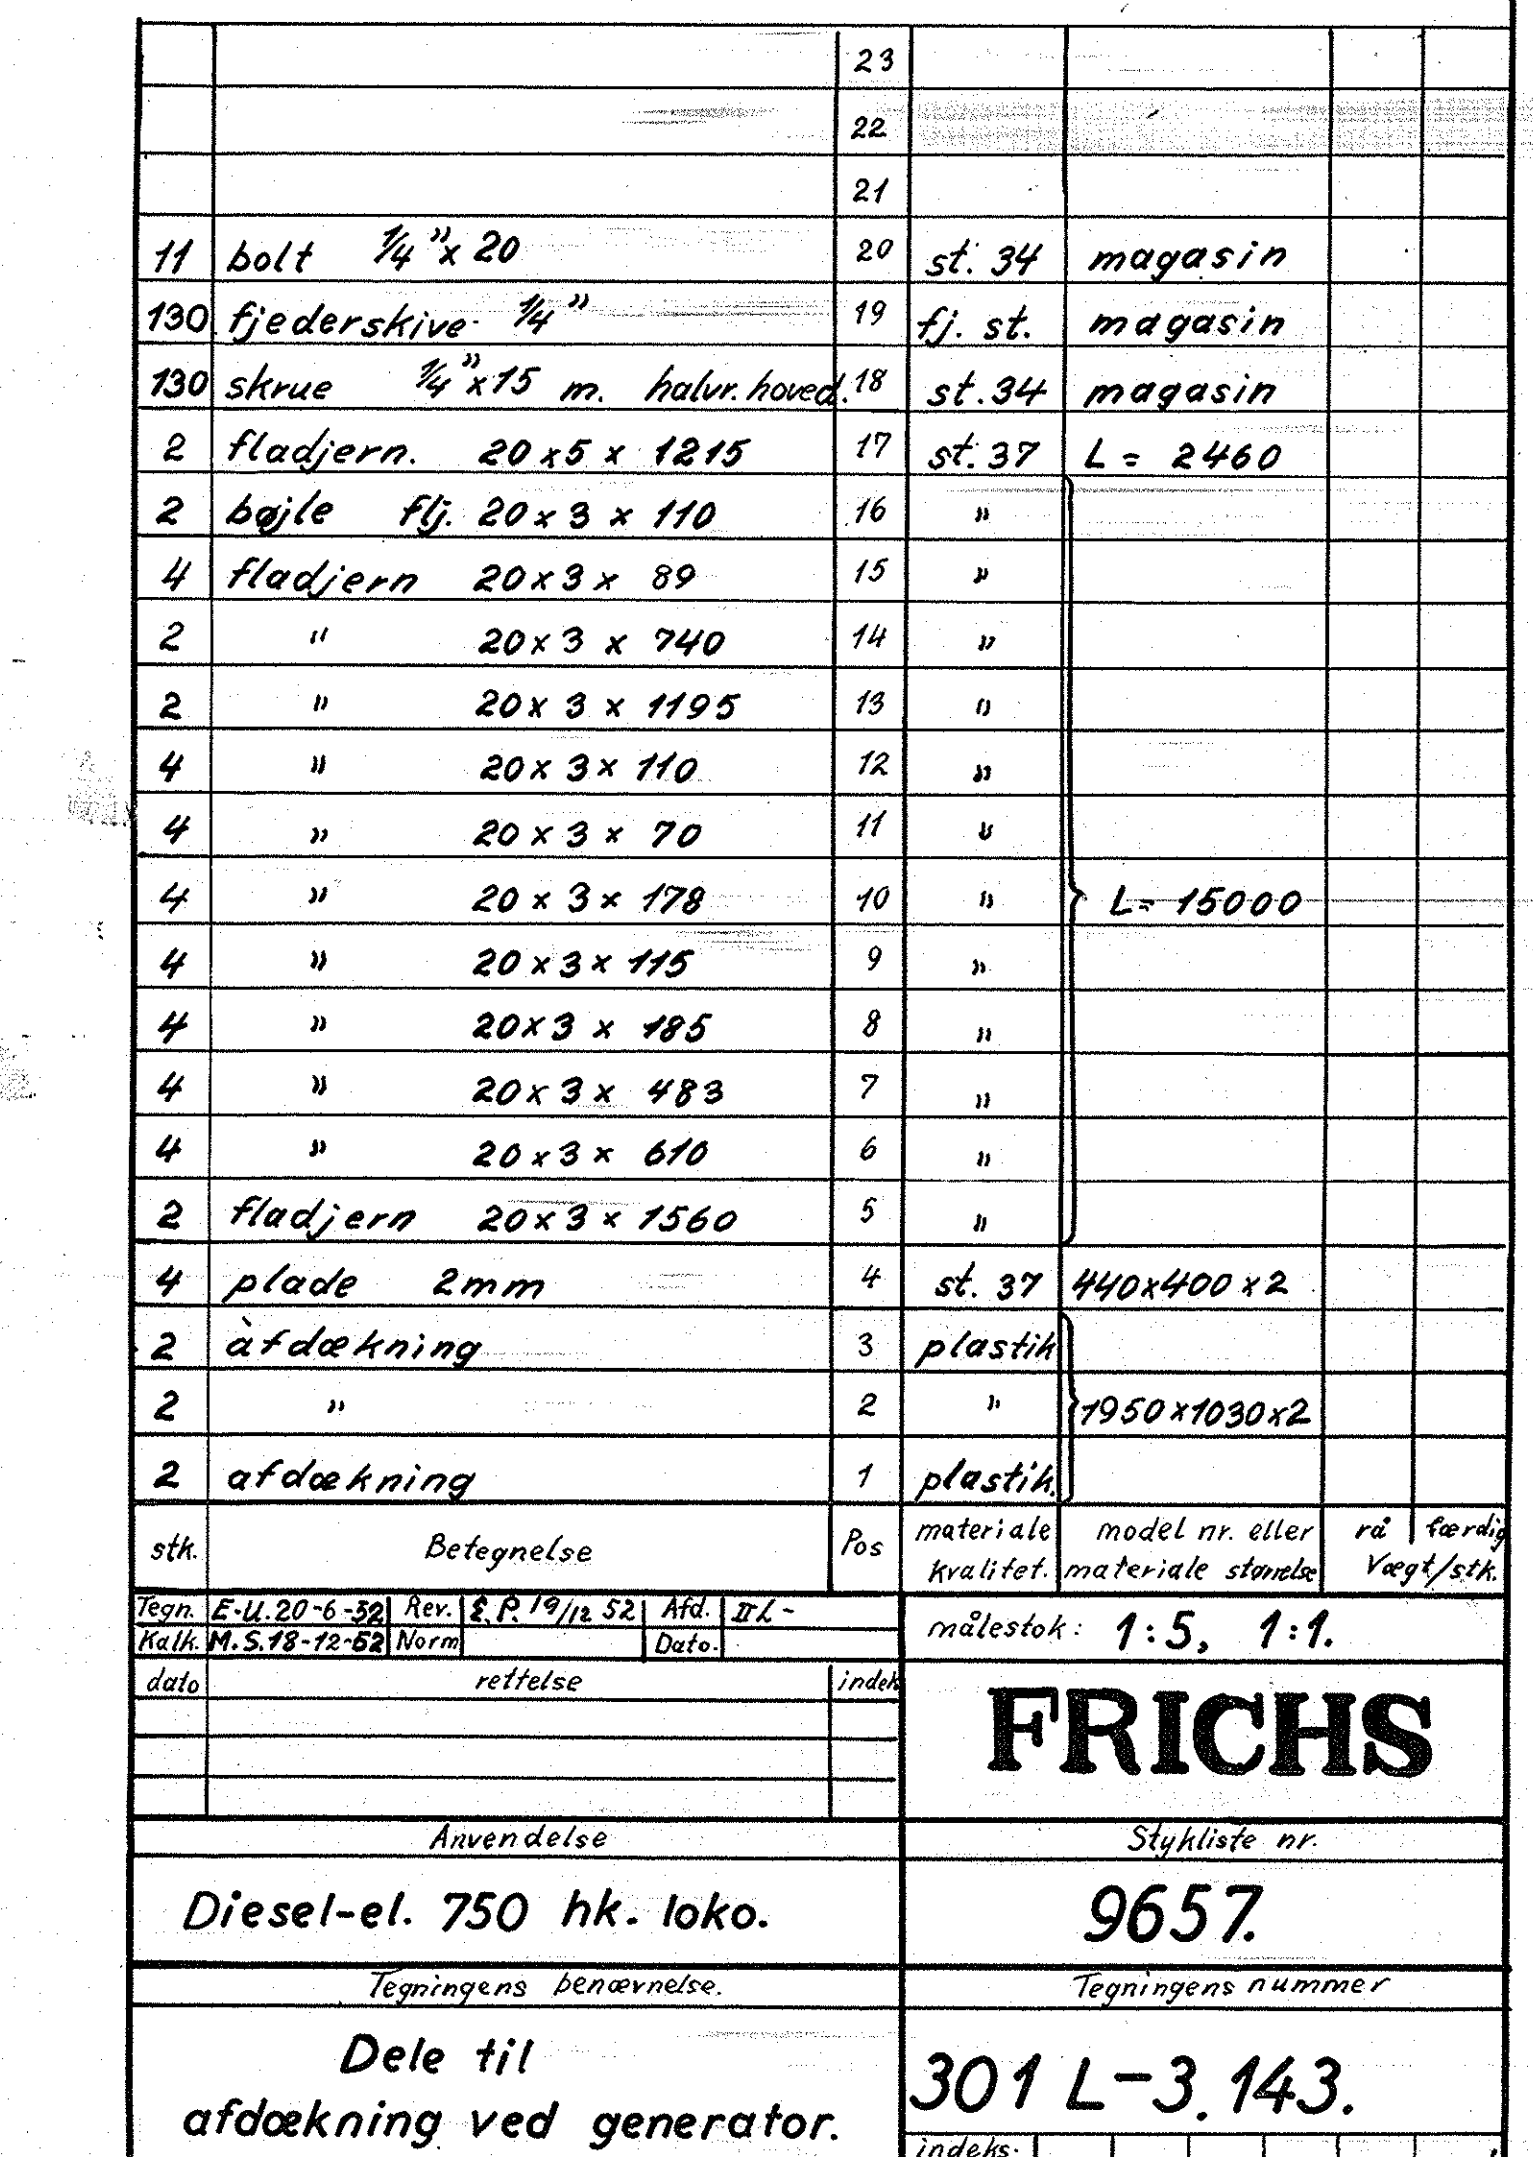 23
22
21
11 bolt 1/4" x 20 20 st. 34 magasin
130 fjederskive 1/4" 19 fj. st. magasin
130 skrue 1/4" x 15 m. halvr. hoved. 18 st. 34 magasin
2 fladjern. 20 x 5 x 1215 17 st. 37 L = 2460
2 bøjle flj. 20 x 3 x 110 16 "
4 fladjern 20 x 3 x 89 15 "
2 " 20 x 3 x 740 14 "
2 " 20 x 3 x 1195 13 "
4 " 20 x 3 x 110 12 "
4 " 20 x 3 x 70 11 "
4 " 20 x 3 x 178 10 " L = 15000
4 " 20 x 3 x 115 9 "
4 " 20 x 3 x 185 8 "
4 " 20 x 3 x 483 7 "
4 " 20 x 3 x 610 6 "
2 fladjern 20 x 3 x 1560 5 "
4 plade 2mm 4 st. 37 440x400x2
2 afdækning 3 plastik
2 " 2 " 1950x1030x2
2 afdækning 1 plastik.
stk. Betegnelse Pos materiale kvalitet. model nr. eller materiale størrelse rå færdig Vægt/stk.
Tegn. E.U. 20-6-52 Rev. E.P. 19/12 52 Afd. II L -
Kalk. M.S. 18-12-52 Norm Dato.
målestok: 1:5, 1:1.
dato rettelse indek
FRICHS
Anvendelse
Stykliste nr.
Diesel-el. 750 hk. loko.
9657.
Tegningens benævnelse.
Tegningens nummer
Dele til
afdækning ved generator.
301 L-3.143.
indeks.